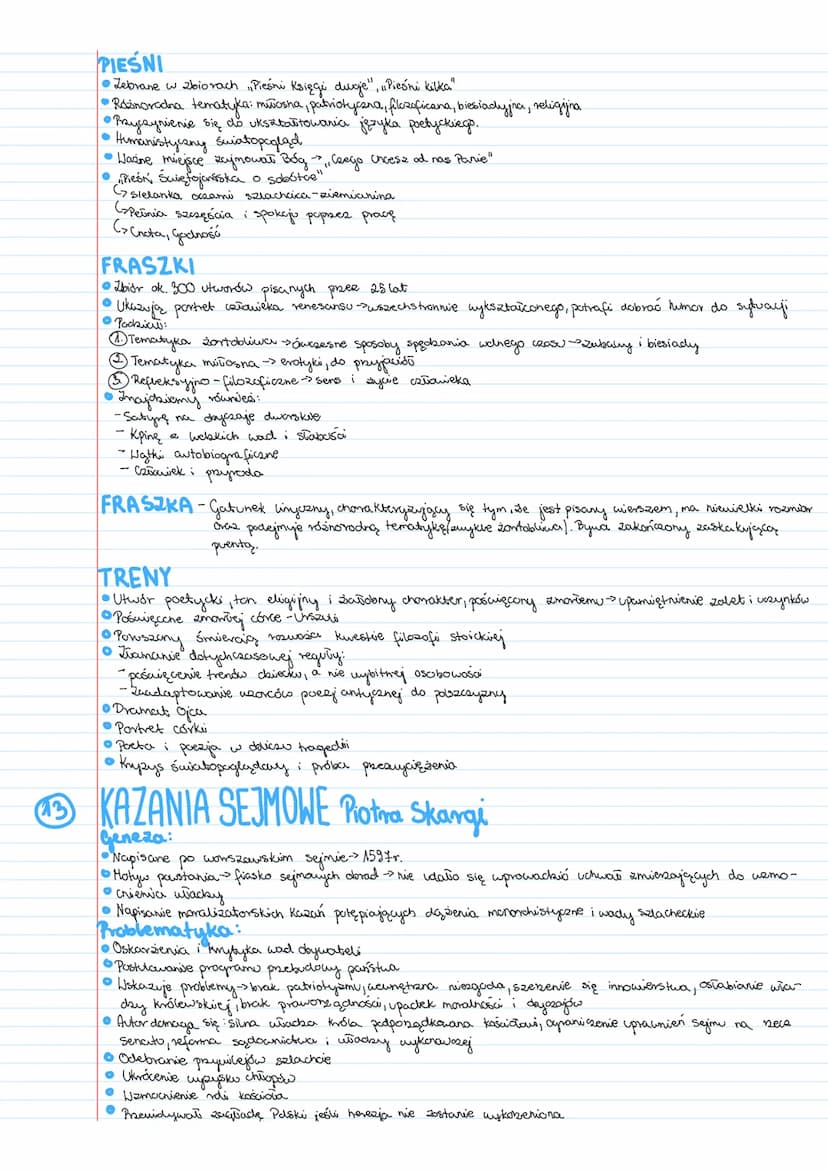 PIEŚNI
• Zebrane w zbiorach „Pieśni Księgi dwoje", „Pieśni kilka"
• Różnorodna tematyka: miłosna, patriotyczna, filozoficzna, biesiadyjna, religijna
• Przyczynienie się do ukształtowania języka poetyckiego.
• Humanistyczny światopogląd
• Ważne miejsce zajmował Bóg → „Czego chcesz od nas Panie"
• „Pieśń Świętojańska o sobótce"
↳ Sielanka oczami szlachcica-ziemianina
↳ Pełnia szczęścia i spokoju poprzez pracę
↳ Cnota, Godność
FRASZKI
• Zbiór ok. 300 utworów pisanych przez 25 lat
• Ukazują portret człowieka renesansu → wszechstronnie wykształconego, potrafi dobrać humor do sytuacji
• Podział:
1. Tematyka żartobliwa → ówczesne sposoby spędzania wolnego czasu → zabawy i biesiady
2. Tematyka miłosna → erotyki, do przyjaciół
3. Refleksyjno-filozoficzne → sens i życie człowieka
• Znajdziemy również:
- Satyrę na obyczaje dworskie
- Kpinę z ludzkich wad i słabości
- Wątki autobiograficzne
- Człowiek i przyroda
FRASZKA - Gatunek liryczny, charakteryzujący się tym, że jest pisany wierszem, ma niewielki rozmiar
oraz podejmuje różnorodną tematykę (zwykle żartobliwą). Bywa zakończony zaskakującą
puentą.
TRENY
• Utwór poetycki, ton eligijny i żałobny charakter, poświęcony zmarłemu → upamiętnienie zalet i uczynków
• Poświęcone zmarłej córce - Urszuli
• Poruszony śmiercią rozważa kwestie filozofi stoickiej
• Złamanie dotychczasowej reguły:
- poświęcenie trenów dziecku, a nie wybitnej osobowości
- Zaadaptowanie wzorców poezj antycznej do polszczyzny
• Dramat Ojca
• Portret córki
• Poeta i poezja w obliczu tragedii
• Kryzys światopoglądowy i próba przezwyciężenia
13 KAZANIA SEJMOWE Piotra Skargi
Geneza:
• Napisane po warszawskim sejmie → 1597r.
• Motyw powstania → fiasko sejmowych obrad → nie udało się wprowadzić uchwał zmierzających do wzmo-
• cnienia władzy
• Napisanie moralizatorskich kazań potępiających dążenia monarchistyczne i wady szlacheckie
Problematyka:
• Oskarżenia i krytyka wad obywateli
• Postulowanie programu przebudowy państwa
• Wskazuje problemy → brak patriotyzmu, wewnętrzna niezgoda, szerzenie się innowierstwa, osłabianie wła-
dzy królewskiej, brak praworządności, upadek moralności i obyczajów
• Autor domaga się: silna władza króla podporządkowana kościołowi, ograniczenie uprawnień sejmu na rzecz
senatu, reforma sądownictwa i władzy wykonawczej
• Odebranie przywilejów szlachcie
• Ukrócenie wyzysku chłopów
• Wzmocnienie roli kościoła
• Przewidywał zagładę Polski jeśli herezja nie zostanie wykorzeniona